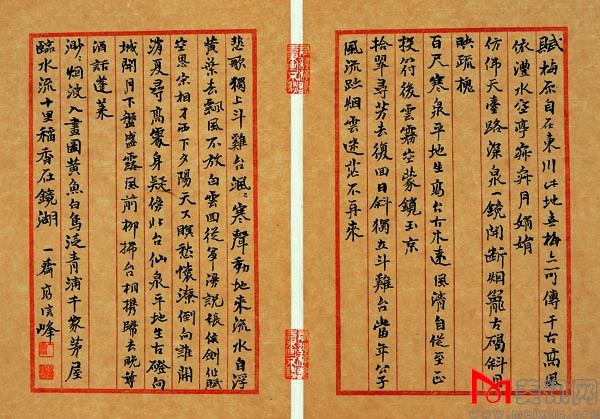 赋梅原自在东川此地無梅亦可傳千古高
依灃水空亭舞舜月娟娟
仿佛天臺路深泉一鏡開断烟籠古碣斜日
映疏槐
百尺寒泉平地生高台古木遠風清自從至正
投符後雲霧空蒙鎖玉京
拾翠尋芳去復回日斜獨立斗雞台當年公子
風流跡烟雲迷茫不再來
悲歌獨上斗雞台颯颯寒聲動地來流水自浮
黄葉去飄風不放白雲回從軍湯説投符剑作賦
空思宋相才西下夕陽天又暝愁懷潦倒向誰開
消夏尋高處身疑傍北台仙泉平地生古磴向
城開月下盤盛露風前柳拂台相携歸去晚尊
酒話蓬莱
渺渺烟波入畫圖黄魚白鳥泛青浦千家茅屋
臨水流十里稻香在鏡湖 一齋 峰
美讯网
www.meixun.org